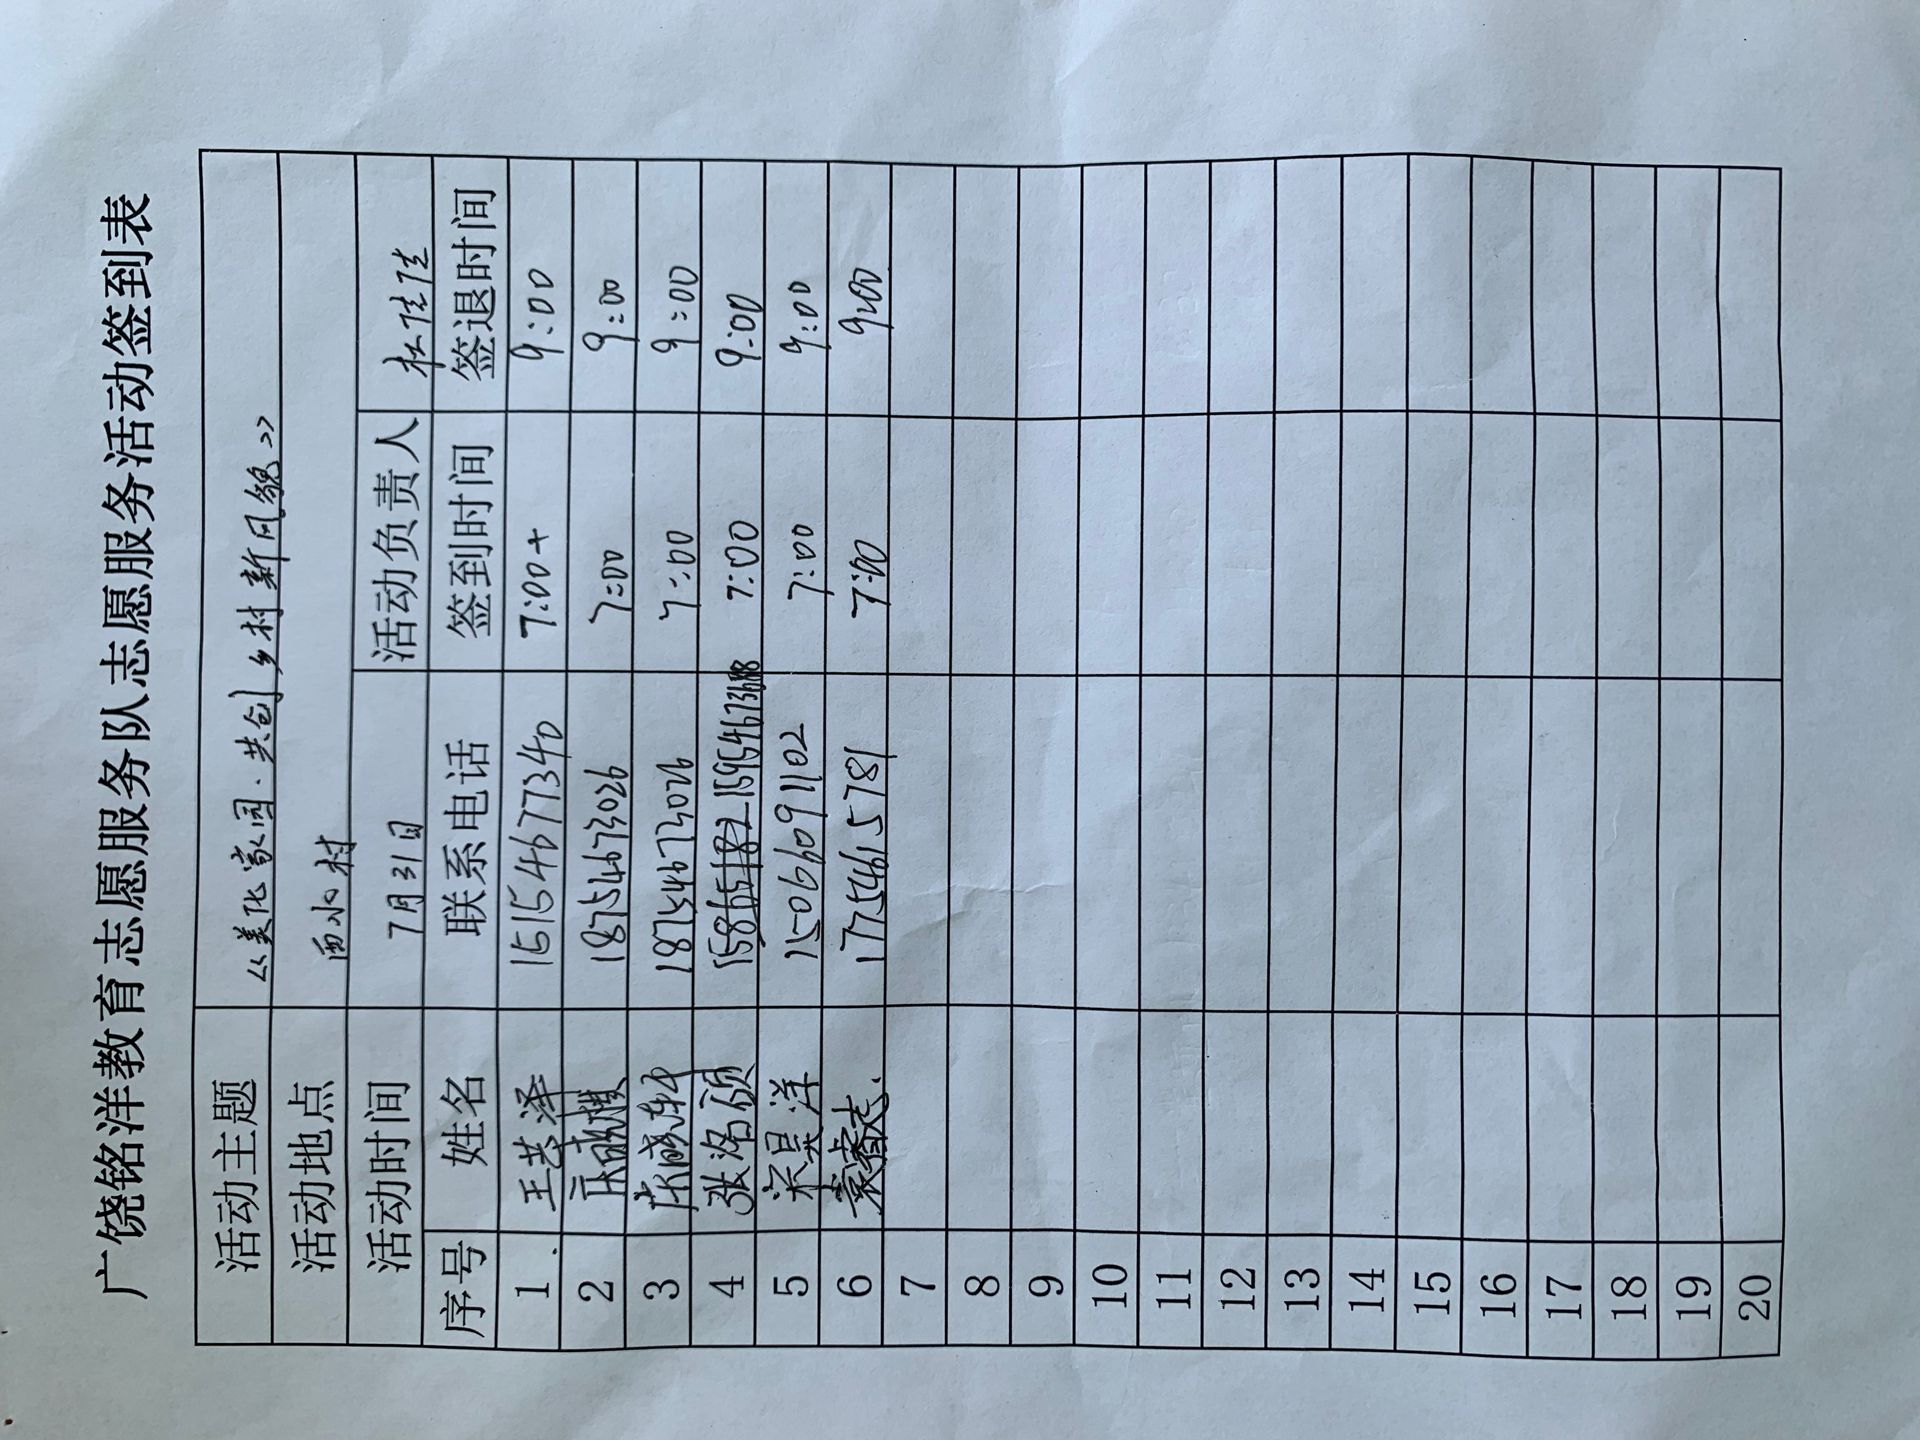 广饶铭洋教育志愿服务队志愿服务活动签到表
活动主题 《美化家园·共创乡村新风貌》
活动地点 西水村
活动时间 7月31日 活动负责人 杜佳佳
序号 姓名 联系电话 签到时间 签退时间
1 王艺泽 15154677340 7:00 9:00
2 18754673026 7:00 9:00
3 18754673026 7:00 9:00
4 张洺硕 7:00 9:00
5 宋昊洋 15066091102 7:00 9:00
6 17754615781 7:00 9:00
7
8
9
10
11
12
13
14
15
16
17
18
19
20